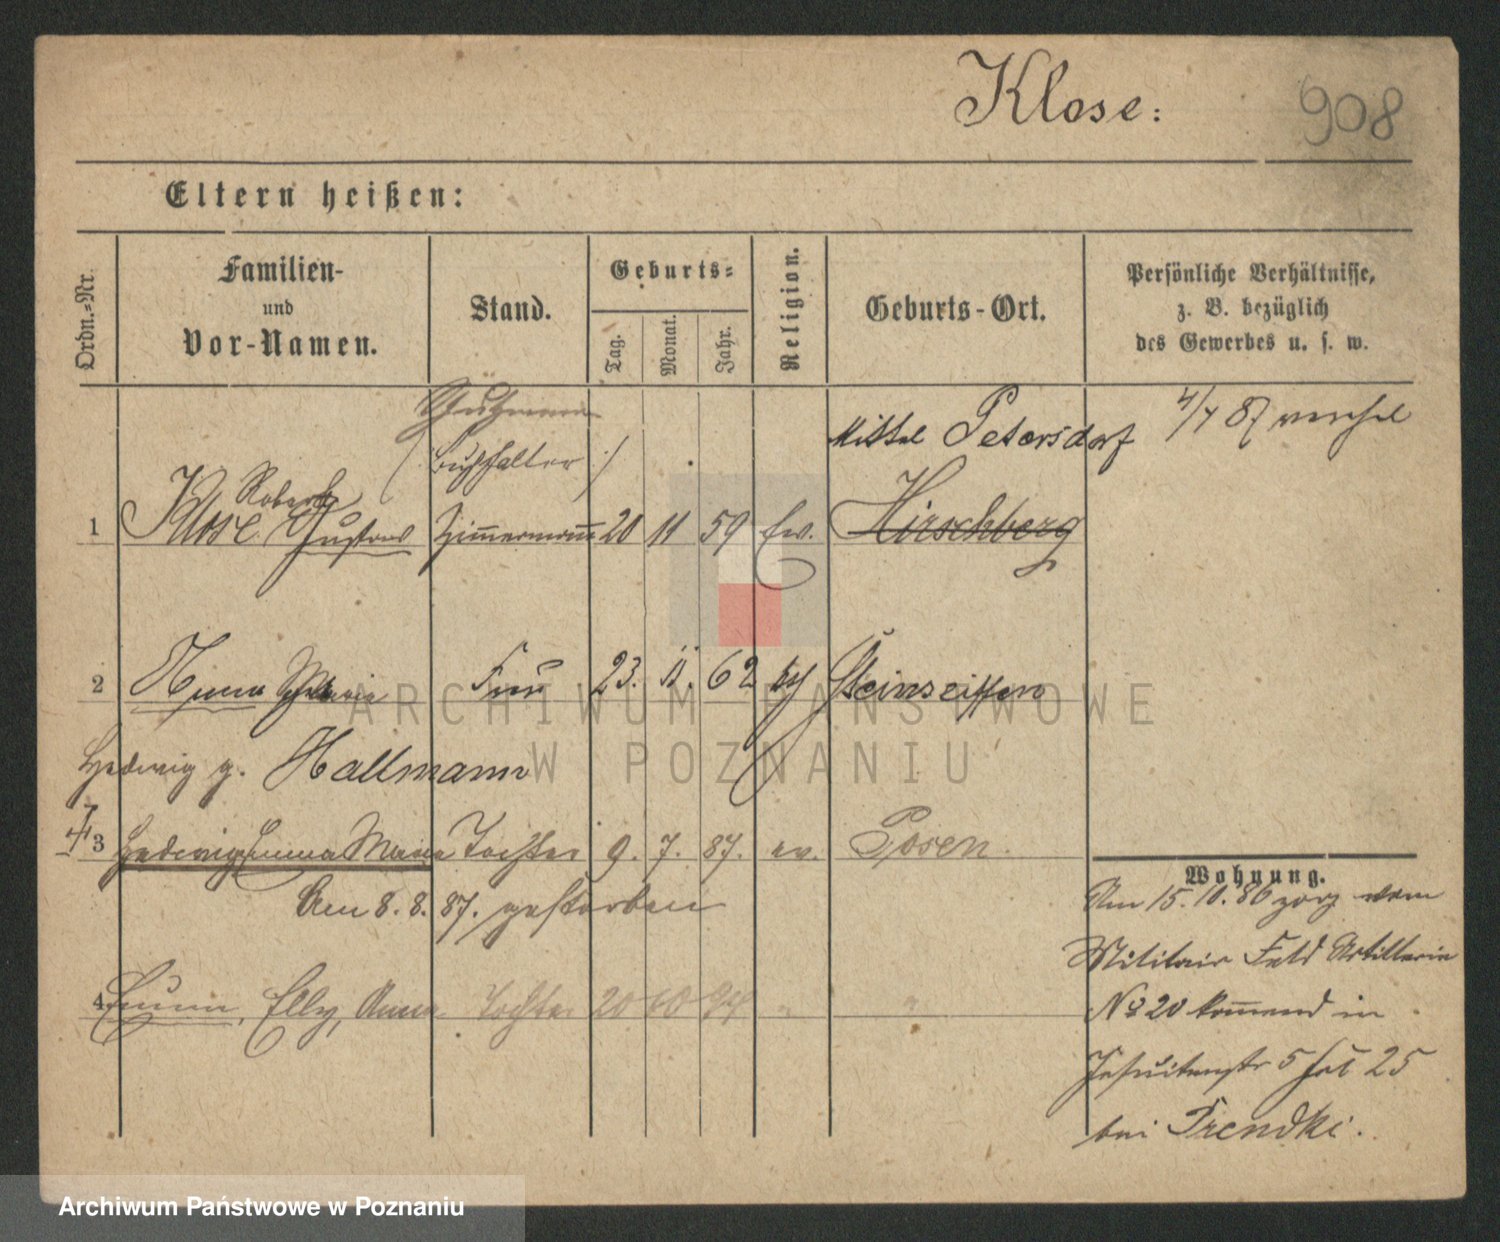 Klose:
908
Eltern heißen:
Ordn.-Nr.
Familien-
und
Vor-Namen.
Stand.
Geburts-
Tag.
Monat.
Jahr.
Religion.
Geburts-Ort.
Persönliche Verhältnisse,
z. B. bezüglich
des Gewerbes u. s. w.
Schutzmann
4/7 87
(Buchhalter)
Mittel Petersdorf
Robert
1 Klose Gustav Zimmermann 20 11 59 Ev. Hirschberg
2 Anna Marie Frau 23. 11. 62 Steinseiffen
Hedwig g. Hallmann
3 Hedwig Emma Marie Tochter 9. 7. 87. ev. Posen.
Am 8. 8. 87. gestorben
4 Emma, Elly, Anna Tochter 20 10 94 " "
Wohnung.
Am 15. 10. 86 zog vom
Militair Feld Artillerie
No 20 kommend in
Jesuitenstr 5 25
bei Trendki.
ARCHIWUM PAŃSTWOWE
W POZNANIU
Archiwum Państwowe w Poznaniu